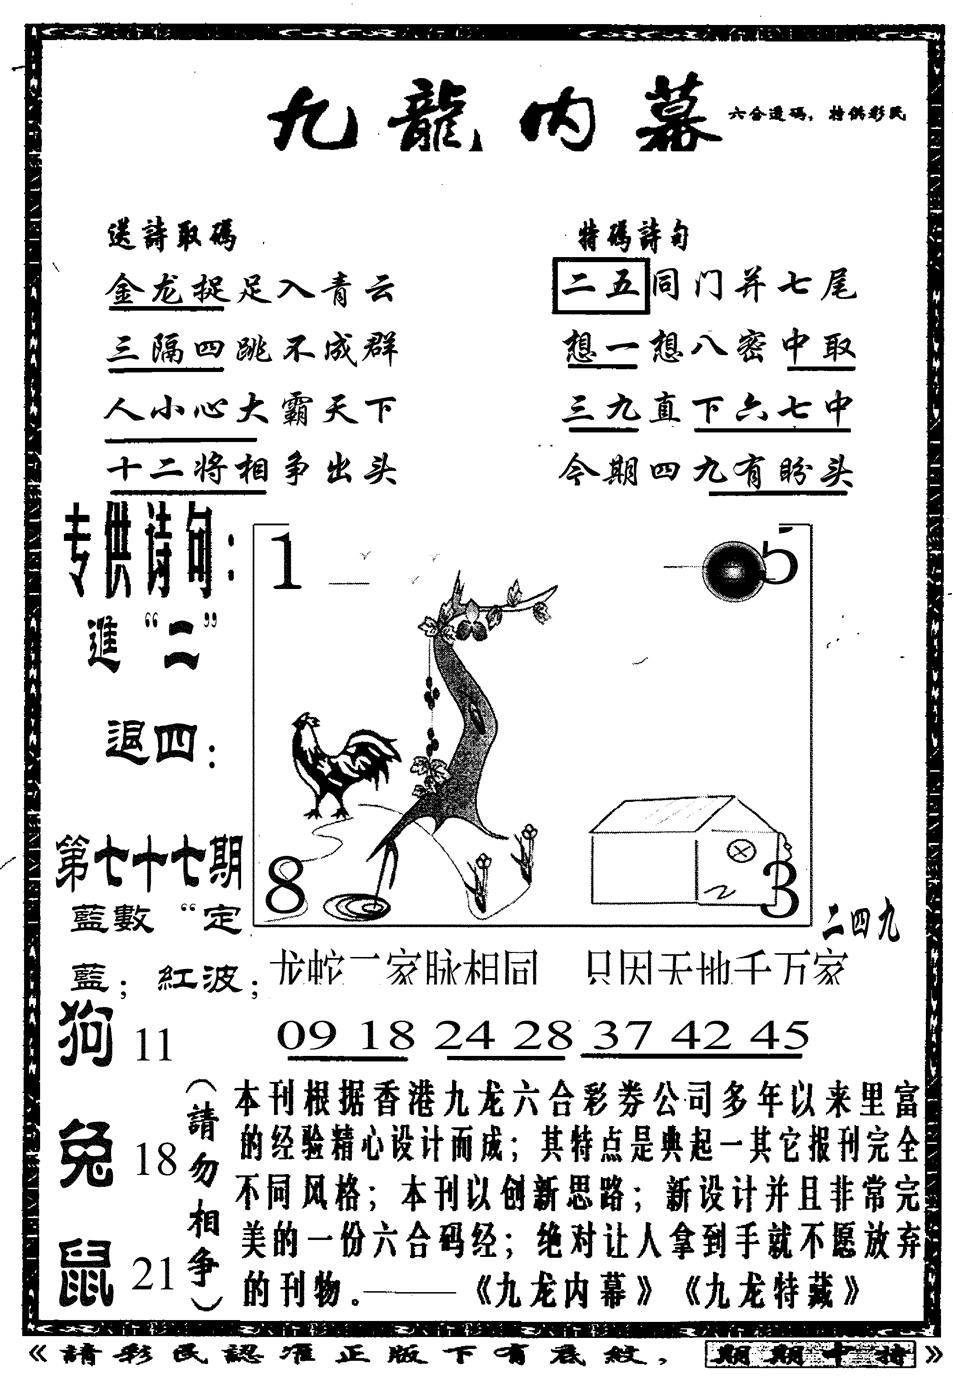 九龍内幕
六合透碼，特供彩民
送詩取碼
金龙捉足入青云
三隔四跳不成群
人小心大霸天下
十二将相争出头
特碼詩句
二五同门并七尾
想一想八密中取
三九直下六七中
今期四九有盼头
专供诗句：
進“二”
退四：
第七十七期
藍數“定
藍；紅波；
1
5
8
3
二四九
龙蛇二家脉相同 只因天地千万家
狗 11
兔 18
鼠 21
09 18 24 28 37 42 45
（請勿相争）
本刊根据香港九龙六合彩券公司多年以来里富
的经验精心设计而成；其特点是典起一其它报刊完全
不同风格；本刊以创新思路；新设计并且非常完
美的一份六合码经；绝对让人拿到手就不愿放弃
的刊物。———《九龙内幕》《九龙特藏》
《請彩民認准正版下有底紋，期期中特》